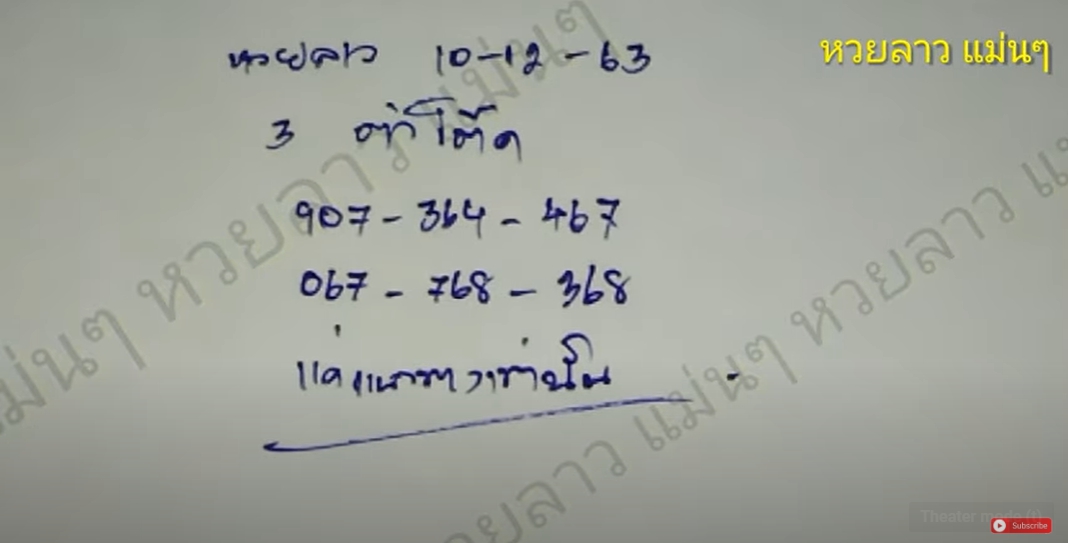 หวยลาว 10-12-63
หวยลาว แม่นๆ
3 ตัวโต๊ด
907 - 364 - 467
067 - 768 - 368
แค่แนวทางเท่านั้น
หวยลาว แม่นๆ
หวยลาว แม่นๆ
หวยลาว แม่นๆ
แม่นๆ
Theater mode (t)
Subscribe